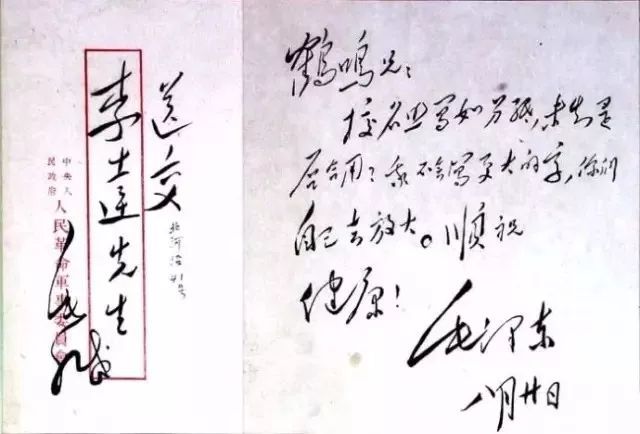 送交
北河沿41号
李達先生
中央人
民政府
人民革命軍事委員會
毛缄
鹤鸣兄：
校名业写如另纸，未知是
否合用？我不会写更大的字，你们
自己去放大。顺祝
健康！
毛泽东
八月廿日